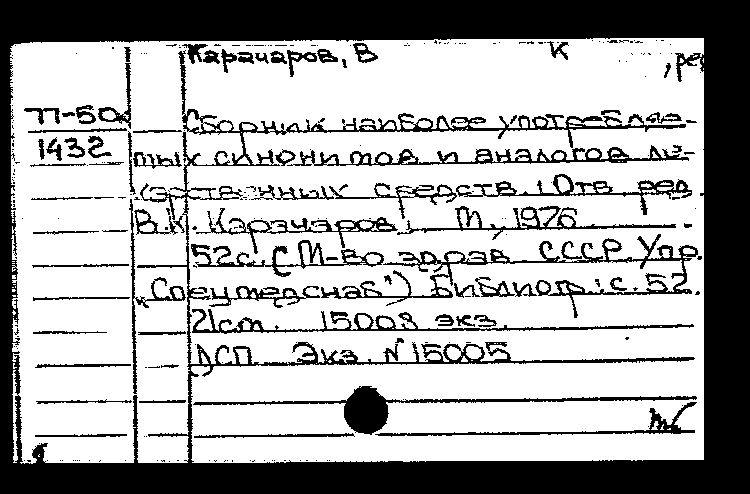 Карачаров, В К
, ред
77-50к Сборник наиболее употребляе-
1432 мых синонимов и аналогов ле-
карственных средств. Отв. ред.
В.К. Карачаров. М., 1976.
52с. (М-во здрав. СССР. Упр.
„Спецмедснаб") Библиогр.: с. 52.
21см. 15008 экз.
ДСП. Экз. N 15005